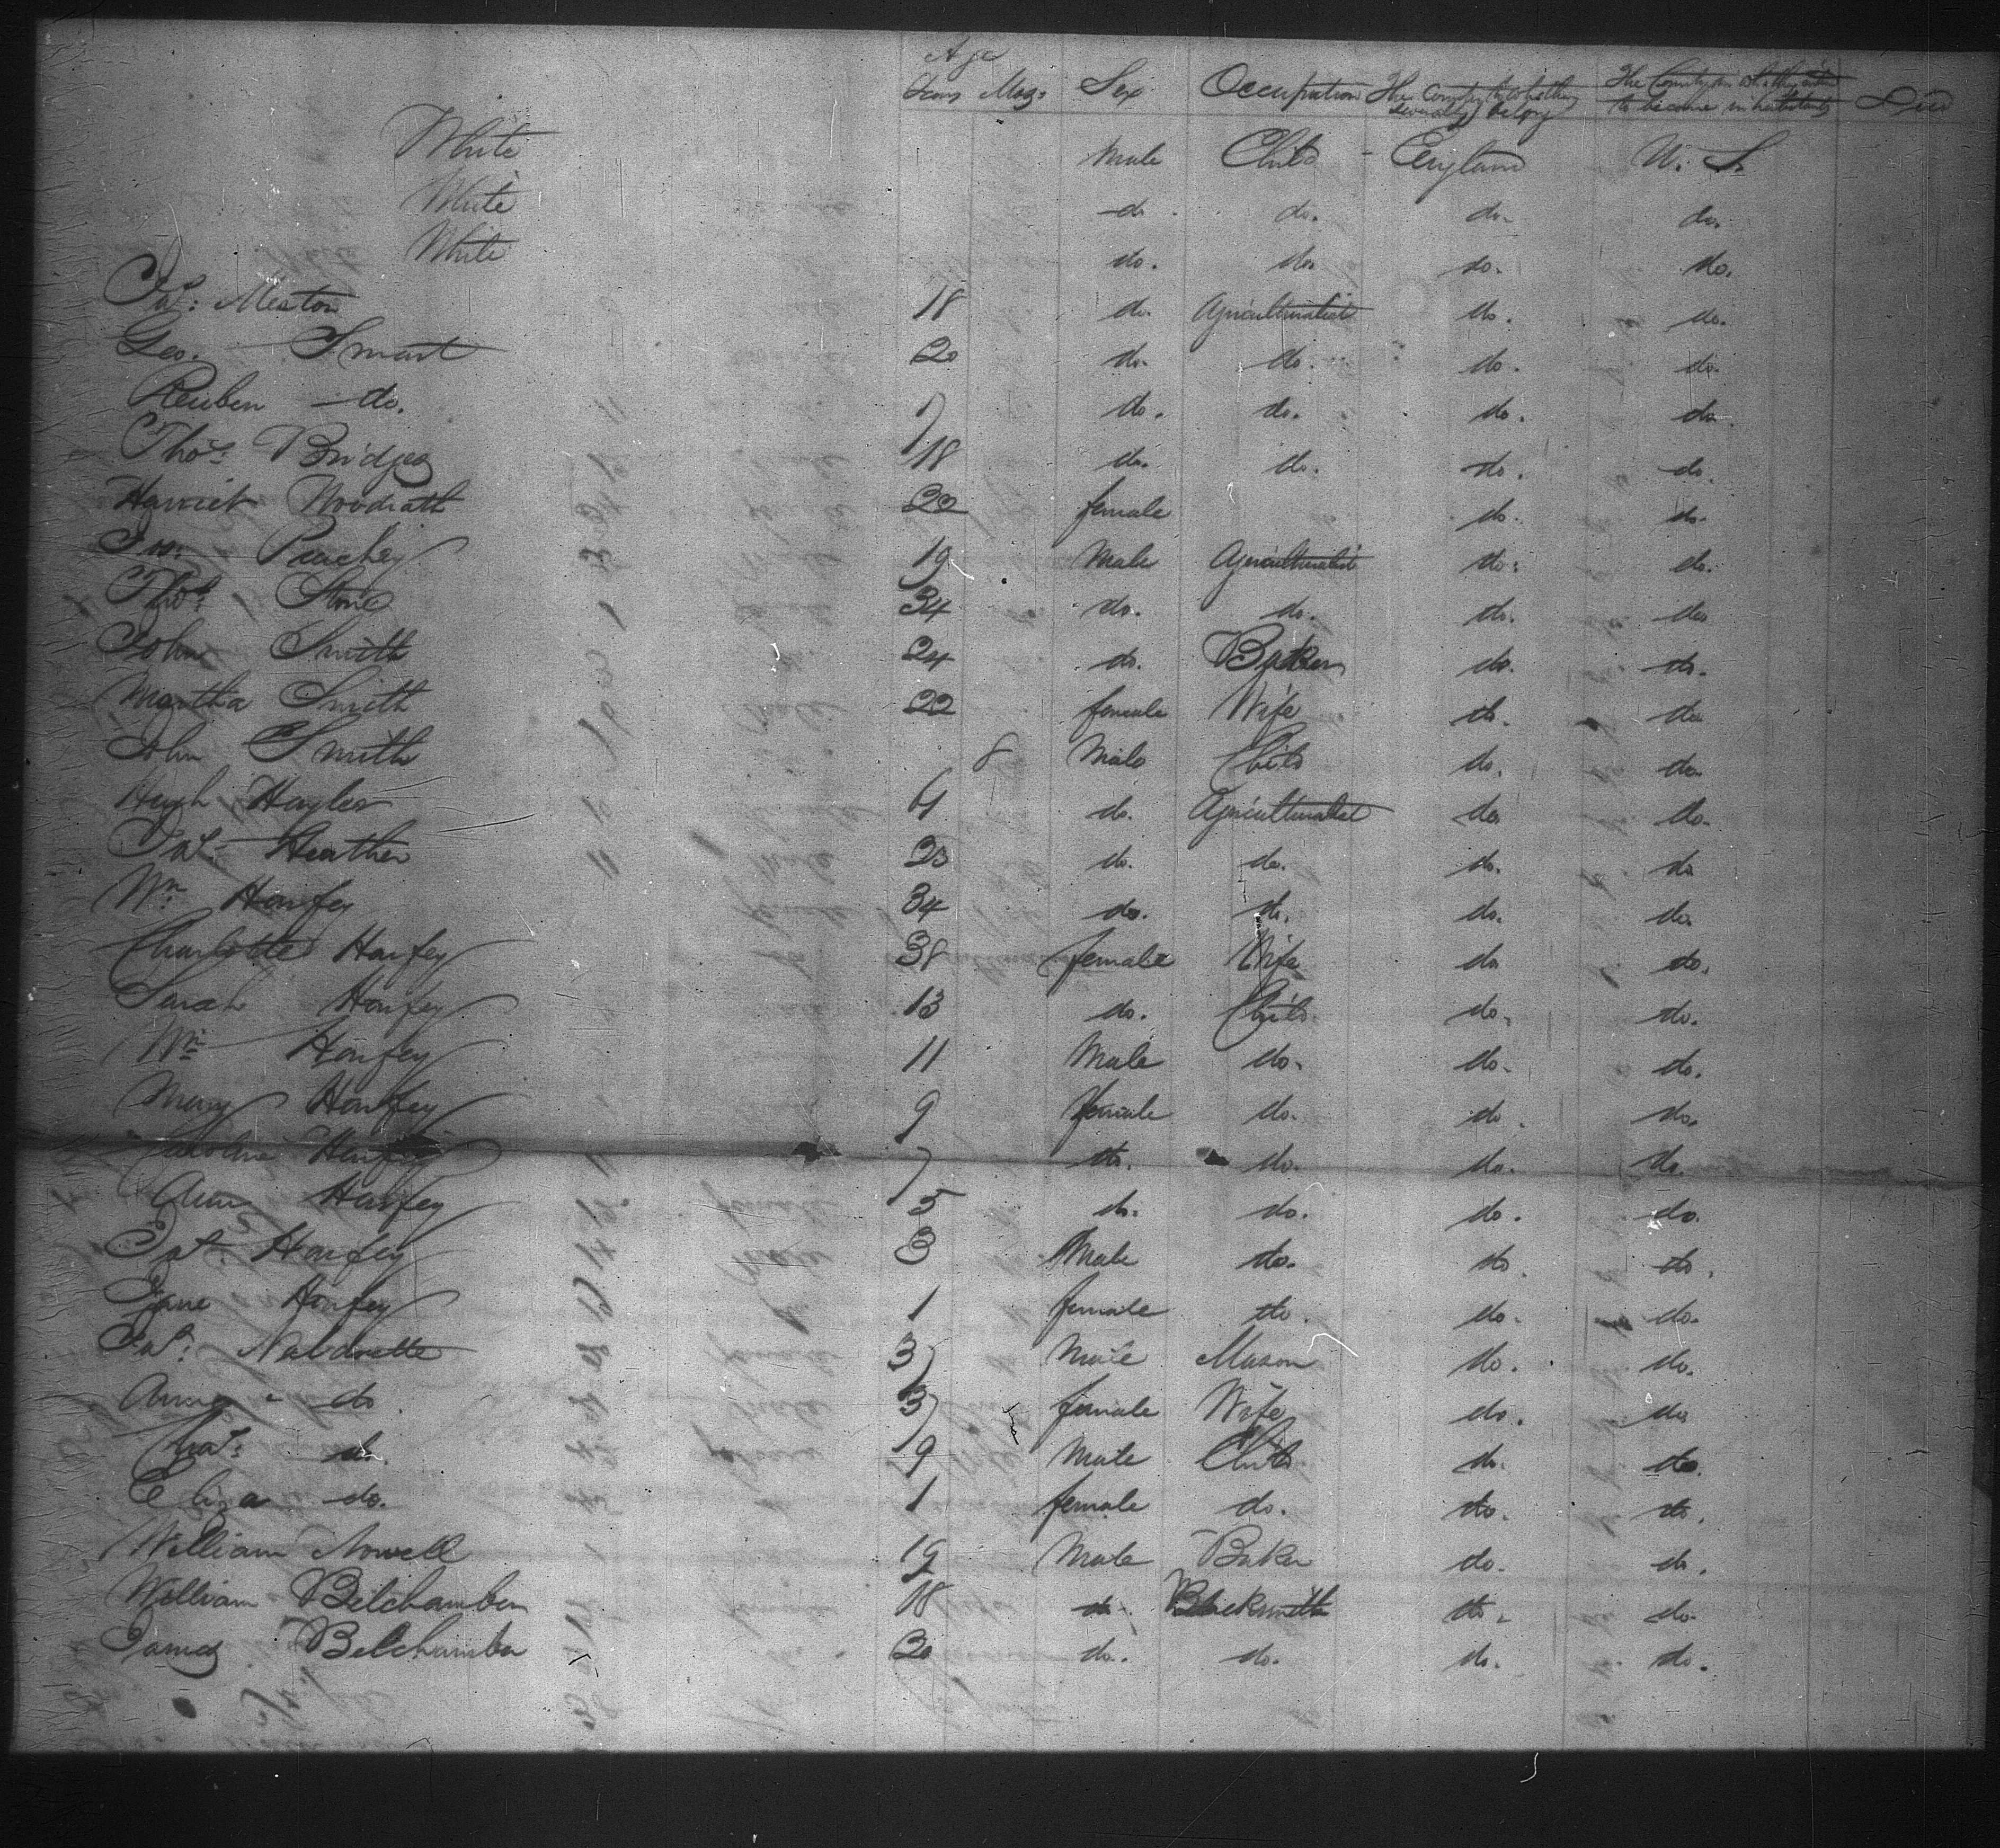 Age
Years Mos. Sex Occupation The Country to which they severally belong The Country in which they intend to become inhabitants Died
White Male Child England U. S.
White do. do. do. do.
White do. do. do. do.
Jas: Meston 18 do. Agriculturalist do. do.
Geo. Smart 20 do. do. do. do.
Reuben do. 17 do. do. do. do.
Thos: Bridges 18 do. do. do. do.
Harriet 22 female do. do.
Jas: Peachey 19 Male Agriculturalist do. do.
Thos: Stone 34 do. do. do. do.
John Smith 24 do. Baker do. do.
Martha Smith 22 female Wife do. do.
John Smith 8 Male Child do. do.
Hugh Hayles do. Agriculturalist do. do.
Jas: Heather 20 do. do. do. do.
Wm. Harfey 34 do. do. do. do.
Charlotte Harfey 38 female Wife do. do.
Sarah Harfey 13 do. Child do. do.
Wm. Harfey 11 Male do. do. do.
Mary Harfey 9 female do. do. do.
Caroline Harfey 7 do. do. do. do.
Ann Harfey 5 do. do. do. do.
Jas. Harfey 3 Male do. do. do.
Jane Harfey 1 female do. do. do.
Jas: 37 Male Mason do. do.
Anna do. 37 female Wife do. do.
Chas: do. 9 Male Child do. do.
Eliza do. 1 female do. do. do.
William Nowell 19 Male Baker do. do.
William Belchamber 18 do. Blacksmith do. do.
James Belchamber 30 do. do. do. do.